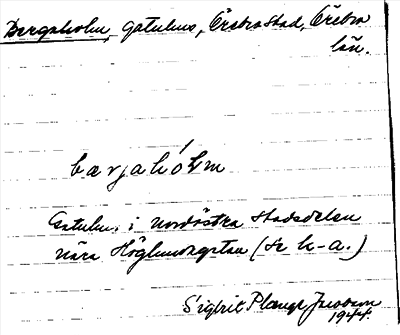 Bergaholm, Gatuhus, Örebro stad, Örebro
län.
bærjahòl̨m
Gatuhus i nordöstra stadsdelen
nära Höglundagatan (se h-a.)
Sigbrit Plænge Jacobson
1944.